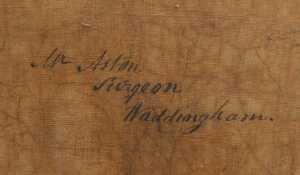 Mr Aston
Surgeon
Waddingham.